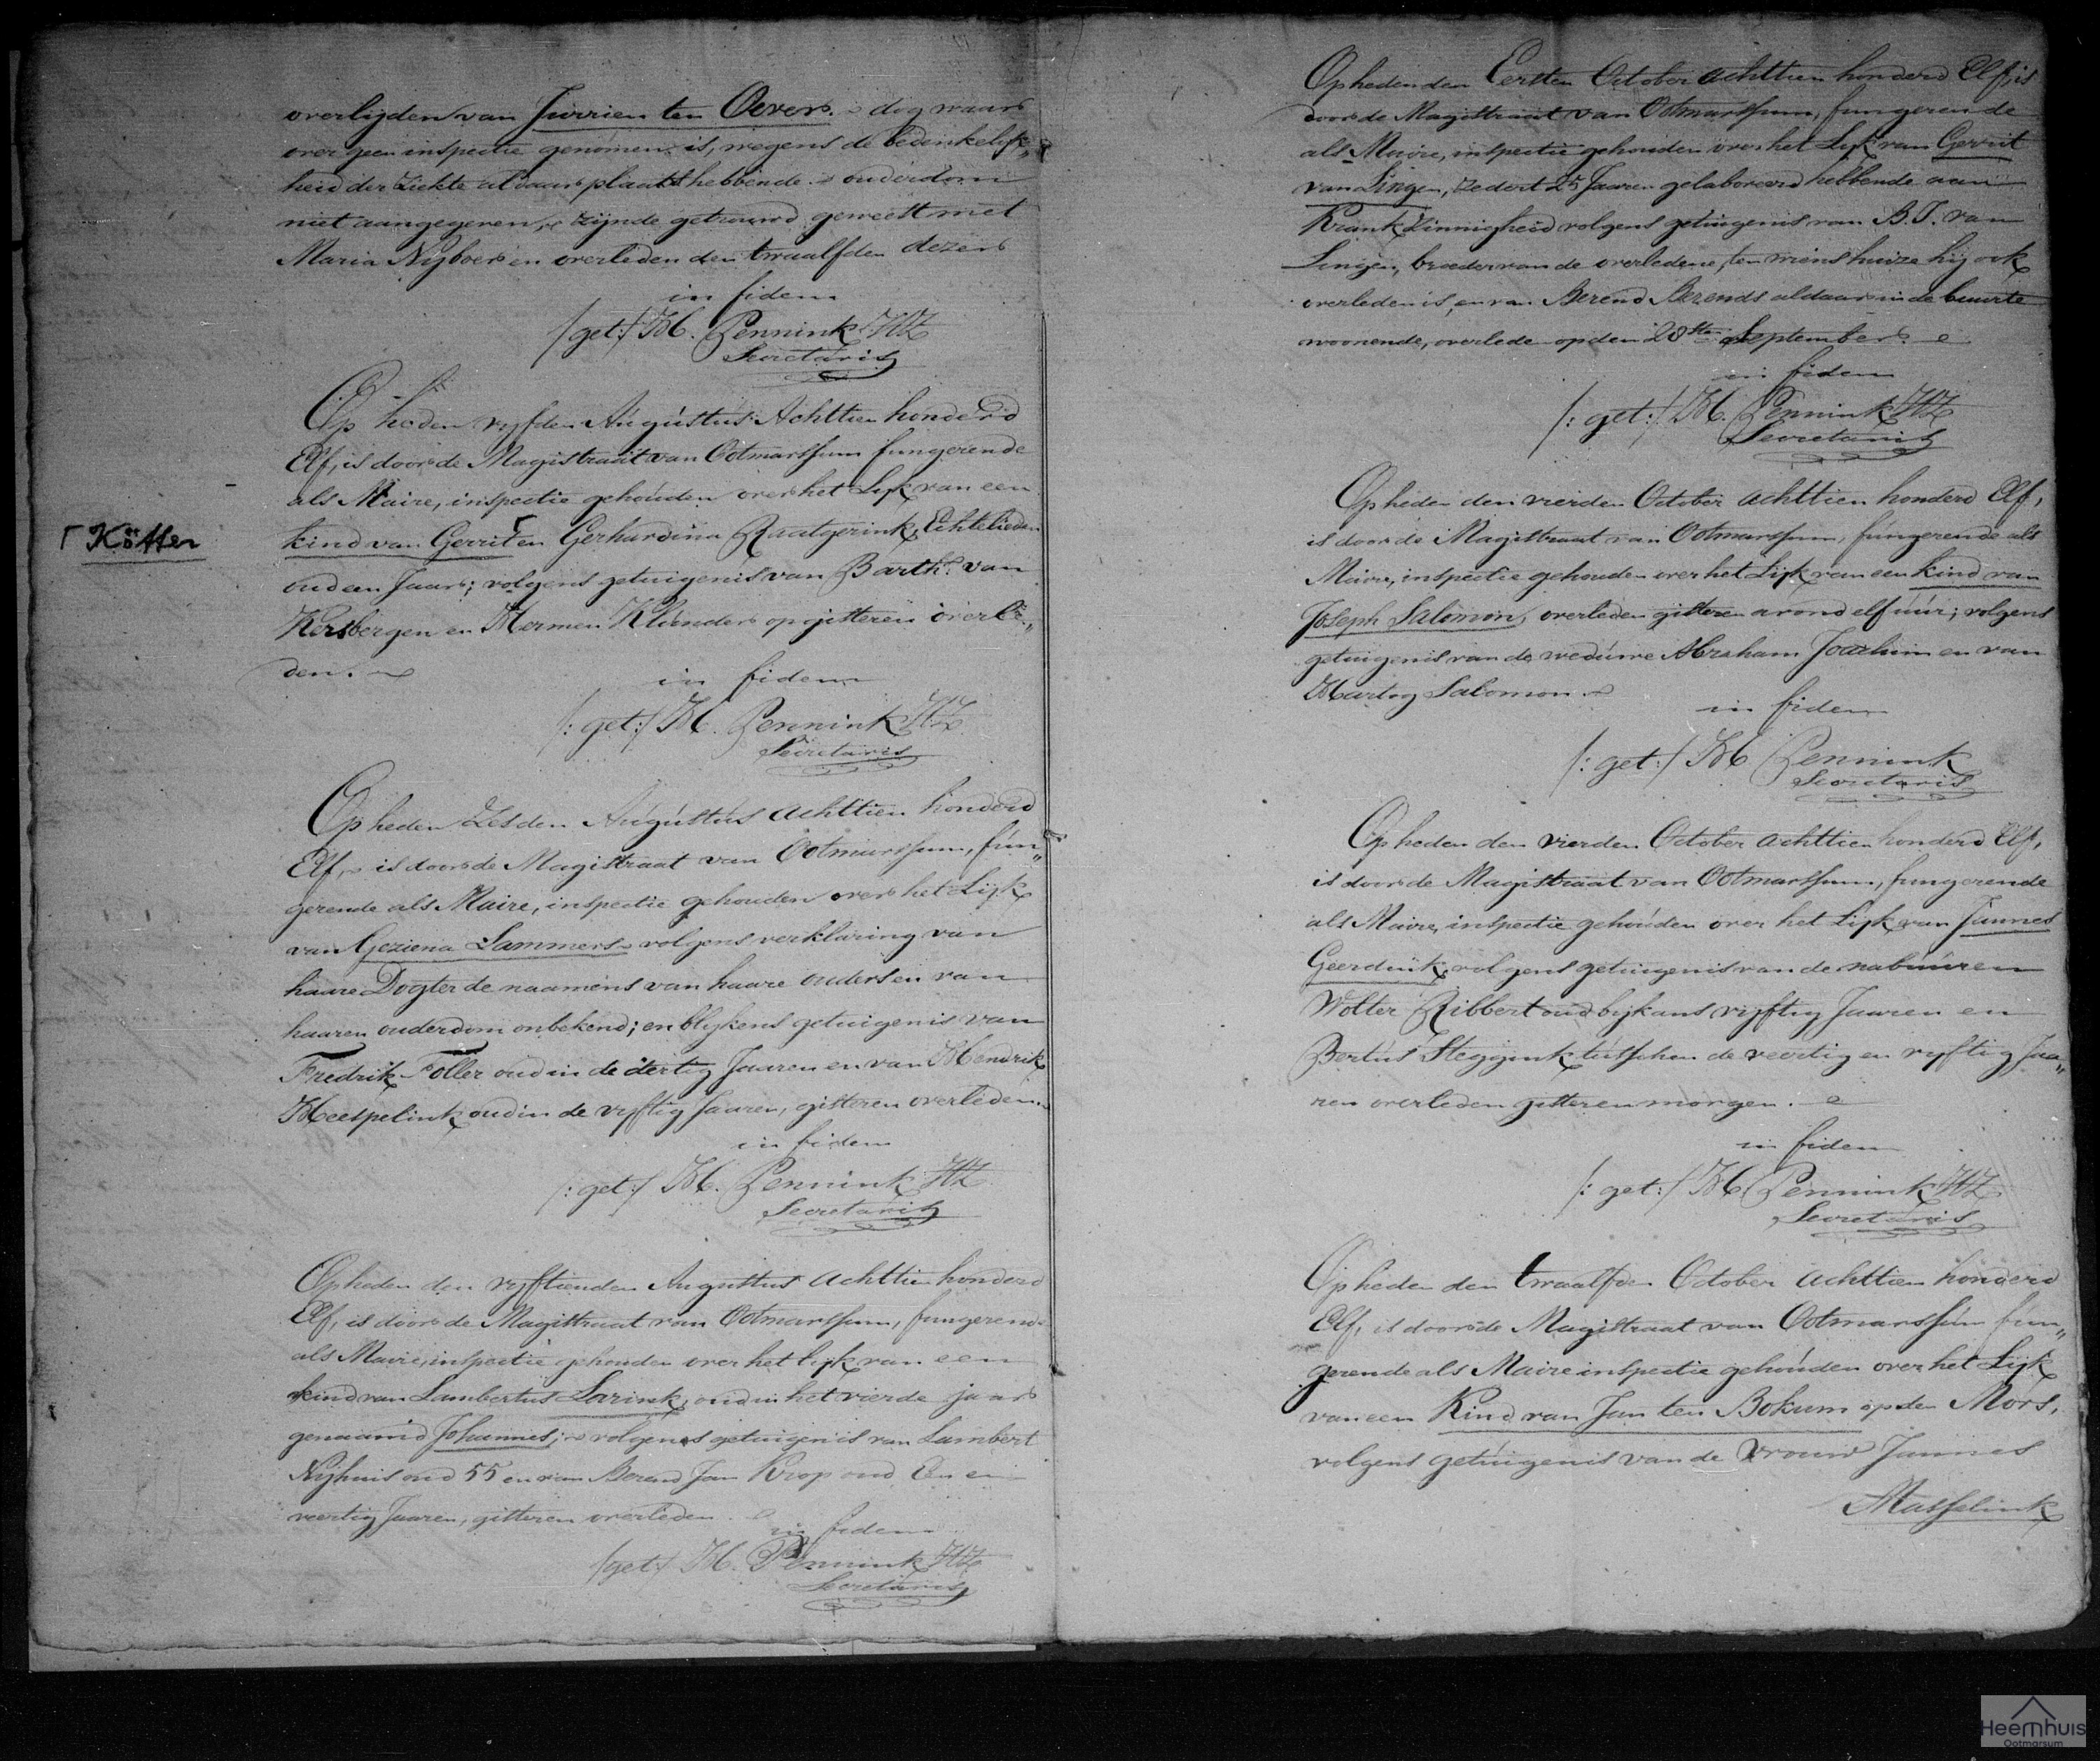 overlijden van Jurrien ten Oever. dog waar
over geen inspectie genomen is, wegens de bedenkelijk„
heid der ziekte aldaar plaats hebbende. ouderdom
niet aangegeven, zijnde getrouwd geweest met
Maria Nijboer en overleden den twaalfden dezer
in fidem
/get:/ H. Pennink HZ
Secretaris
Op heden vyfden Augústus Achttien honderd
Elf, is door de Magistraat van Ootmarssum fungerende
als Maire, inspectie gehouden over het Lyk van een
kind van Gerrit ┌ en Gerhardina Raatgerink, Echtelieden
┌ Kötter
oud een Jaar; volgens getuigenis van Barth: van
Kersbergen en Hermen Klúnder op gisteren overle„
den.
in fidem
/: get:/ H. Pennink HZ
Secretaris
Op heden Zesden Augústus achttien honderd
Elf, is door de Magistraat van Ootmarssum, fún„
gerende als Maire, inspectie gehouden over het Lijk
van Geziena Lammers volgens verklaring van
haare Dogter de naamens van haare ouders en van
haaren ouderdom onbekend; en blykens getuigenis van
Fredrik Foller oud in de dertig Jaaren en van Hendrik
Heespelink oud in de vyftig Jaaren, gisteren overleden.
in fidem
/: get:/ H. Pennink HZ
Secretaris
Op heden den vyftienden Augustus achttien honderd
Elf, is door de Magistraat van Ootmarssum, fungerende
als Maire, inspectie gehouden over het lijk van een
kind van Lambertus Lorink, oud in het vierde jaar
genaamd Johannes; volgens getuigenis van Lambert
Nijhuis oud 55 en van Berend Jan Krop oud Een en
veertig Jaaren, gisteren overleden.
in fidem
/get:/ H. Pennink HZ
Secretaris
Op heden den Eersten October achttien honderd Elf, is
door de Magistraat van Ootmarssum, fungerende
als Maire, inspectie gehouden over het Lyk van Gerrit
van Lingen, zedert 25 Jaaren gelaboreerd hebbende aan
Krankzinnigheid volgens getuigenis van B. J. van
Lingen, broeder van de overledene, ten wiens huize hij ook
overleden is, en van Berend Berends aldaar in de buurte
woonende, overlede op den 28sten September.
in fidem
/: get:/ H. Pennink HZ
Secretaris
Op heden den vierden October achttien honderd Elf,
is door de Magistraat van Ootmarssum, fúngerende als
Maire, inspectie gehouden over het Lijk van een kind van
Joseph Salomon, overleden gisteren avond elf úúr; volgens
getuigenis van de wedúwe Abraham Joachim en van
Hartog Salomon.
in fidem
/: get:/ H Pennink
Secretaris
Op heden den vierden October achttien honderd Elf,
is door de Magistraat van Ootmarssum, fungerende
als Maire, inspectie gehouden over het Lijk van Jannes
Geerdink, volgens getuigenis van de nabuuren
Wolter Ribbert oud bijkans vyftig Jaaren en
Bertús Steggink tútschen de veertig en vyftig Jaa„
ren overleden gisteren morgen.
in fidem
/: get:/ H Pennink HZ
Secretaris
Op heden den twaalfden October achttien honderd
Elf, is door de Magistraat van Ootmarssúm fún„
gerende als Maire inspectie gehouden over het Lijk
van een Kind van Jan ten Bokum op den Mors,
volgens getúigenis van de Vrouw Jannes
Masselink
Heemhuis
Ootmarsum